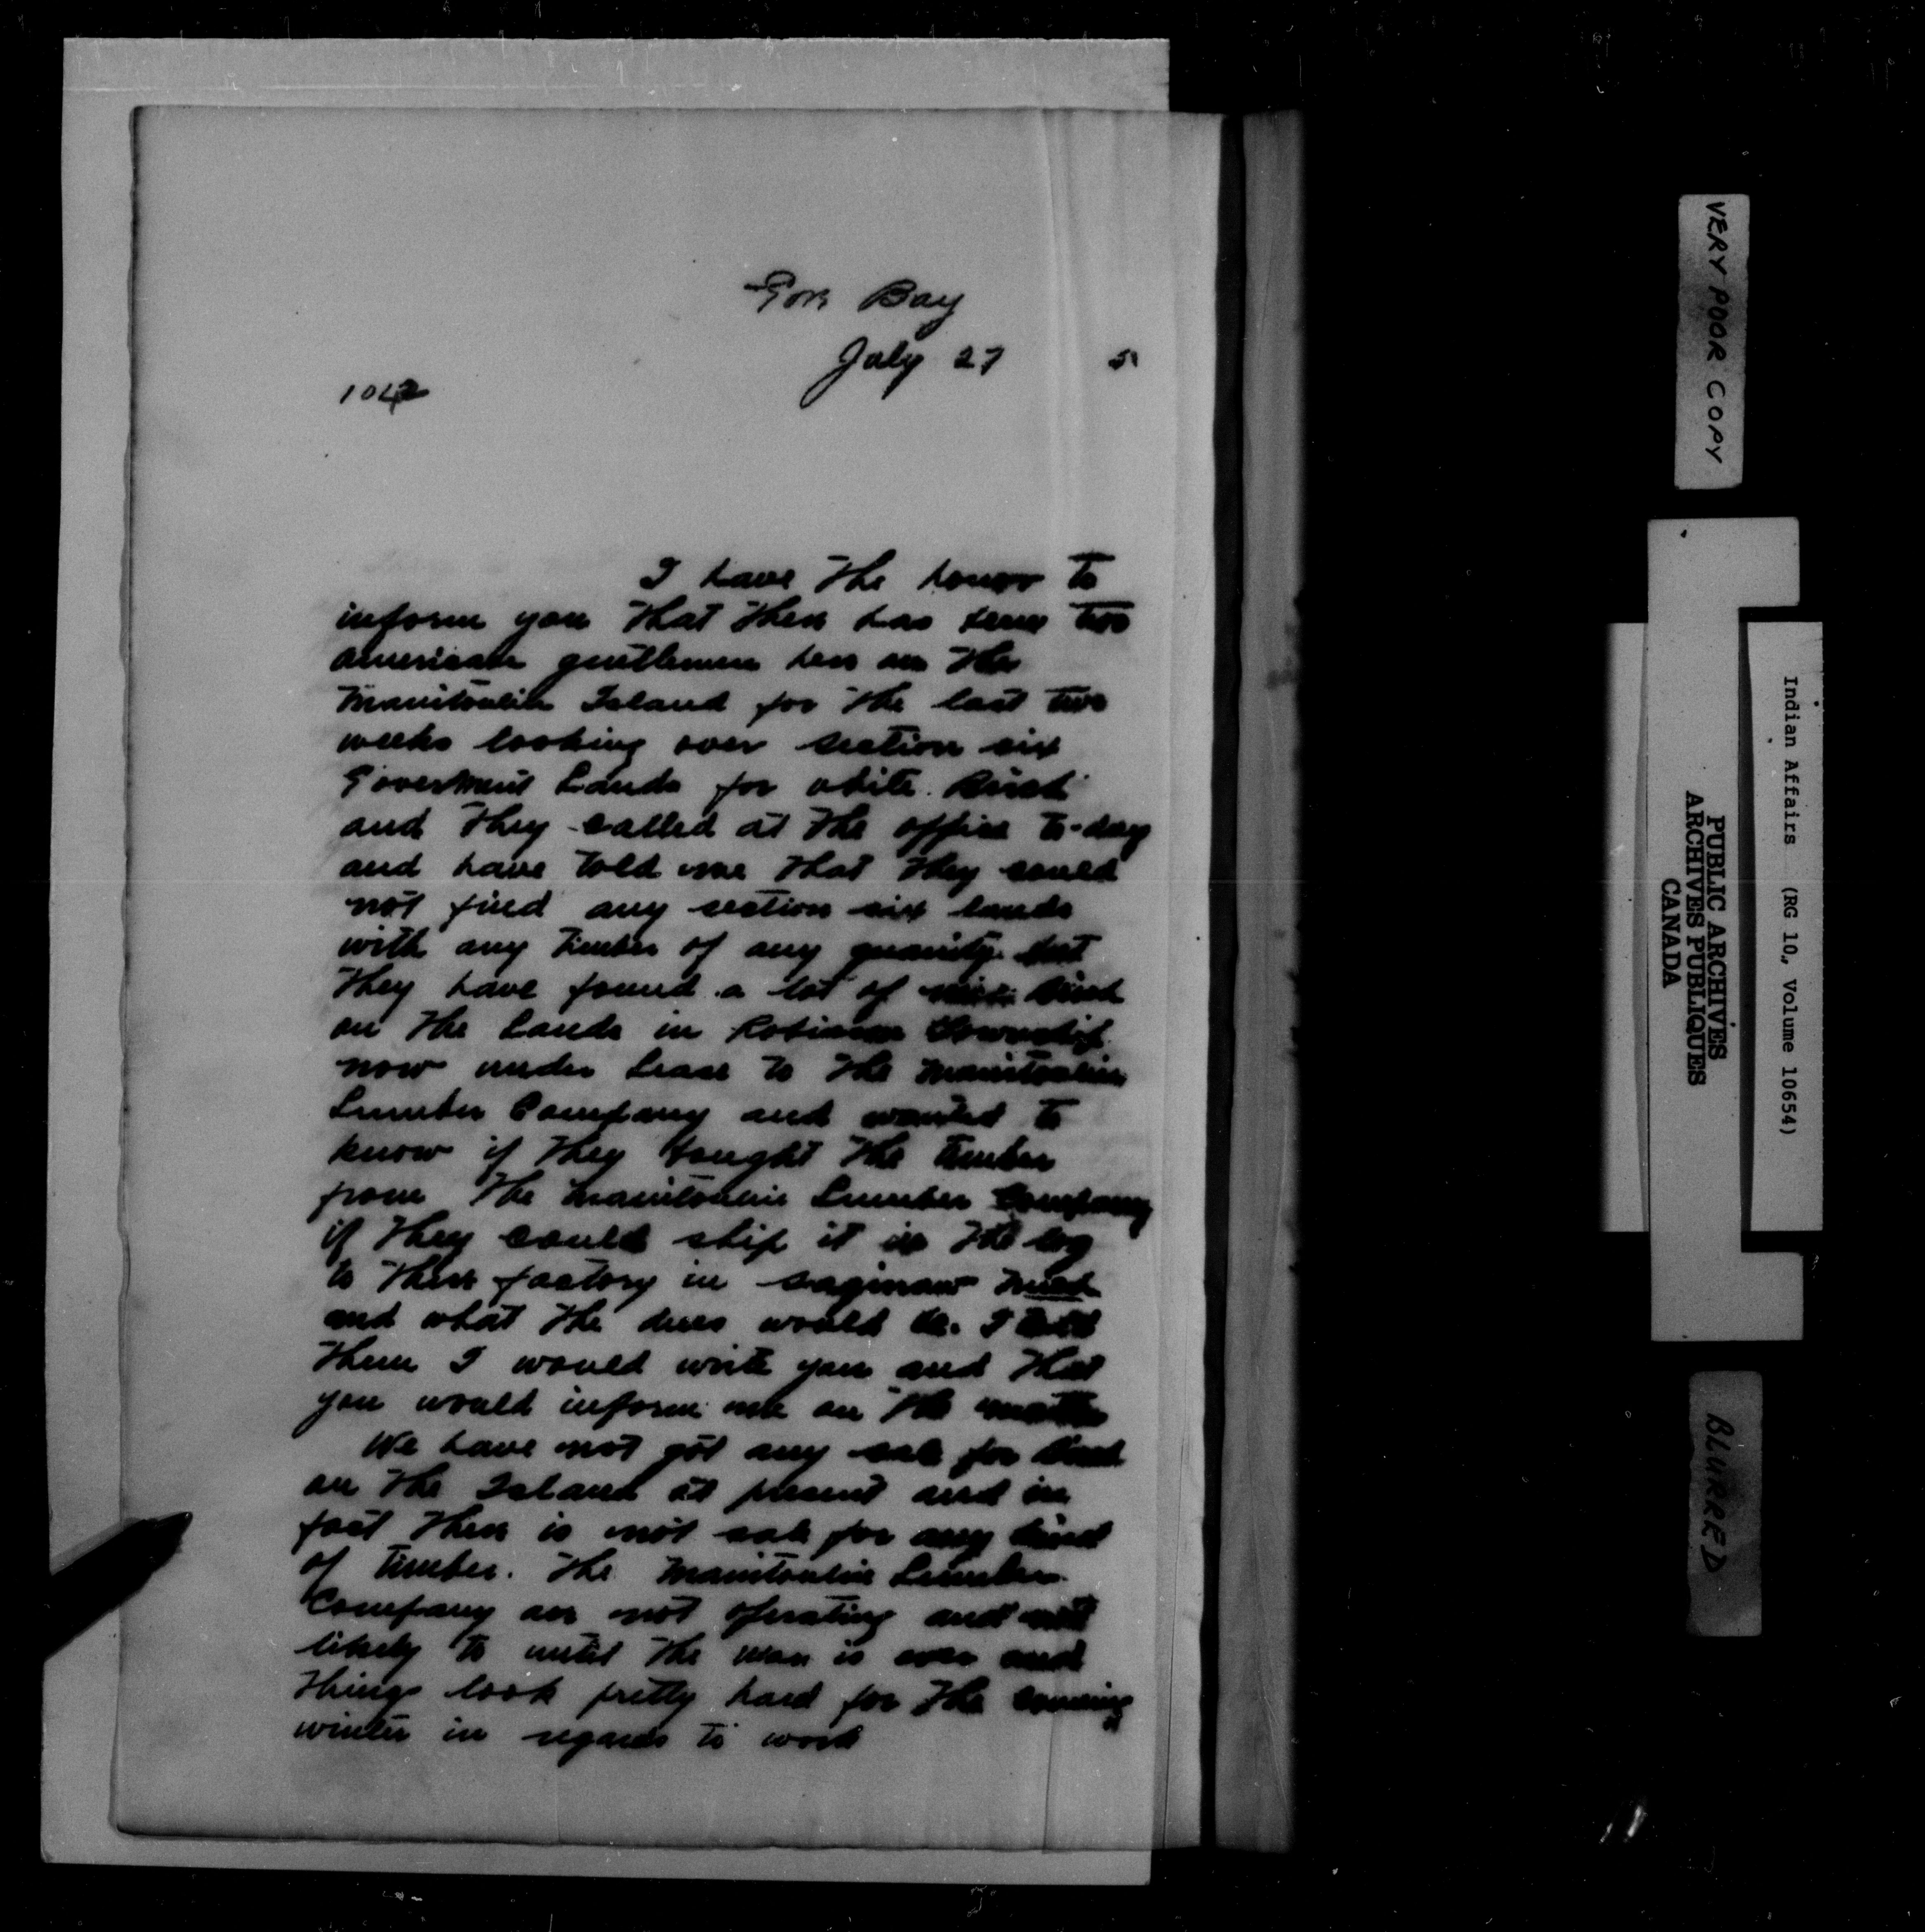 Gore Bay
July 27 5
1042
I have the honor to
inform you that there has been two
american gentlemen here on the
Manitoulin Island for the last two
weeks looking over section six
Goverment Lands for white Birch
and they called at the office to-day
and have told me that they could
not find any section six lands
with any timber of any quanity but
they have found a lot of nice Birch
on the Lands in Robinson Township
now under Lease to the Manitoulin
Lumber Company and wanted to
know if they bought the timber
from the Manitoulin Lumber Company
if they could ship it in the log
to there factory in saginaw Mich
and what the dues would be. I told
them I would write you and that
you would inform me on the matter
We have not got any sale for Birch
on the Island at present and in
fact there is not sale for any kind
of timber. The Manitoulin Lumber
Company are not operating and not
likely to until the war is over and
things look pretty hard for the coming
winter in regards to work
VERY POOR COPY
Indian Affairs (RG 10,, Volume 10654)
PUBLIC ARCHIVES
ARCHIVES PUBLIQUES
CANADA
BLURRED